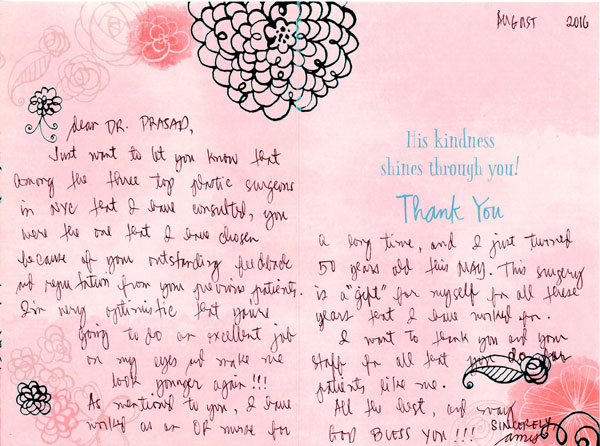 AUGUST 2016
dear DR. PRASAD,
Just want to let you know that
among the three top plastic surgeons
in NYC that I have consulted, you
were the one that I have chosen
because of your outstanding feedback
and reputation from your previous patients.
I'm very optimistic that you're
going to do an excellent job
on my eyes and make me
look younger again!!!
As mentioned to you, I have
worked as an OR nurse for
His kindness
shines through you!
Thank You
a long time, and I just turned
50 years old this MAY. This surgery
is a "gift" for myself for all these
years that I have worked for.
I want to thank you and your
staff for all that you do for
patients like me.
All the best, and may
GOD BLESS YOU!!!
SINCERELY